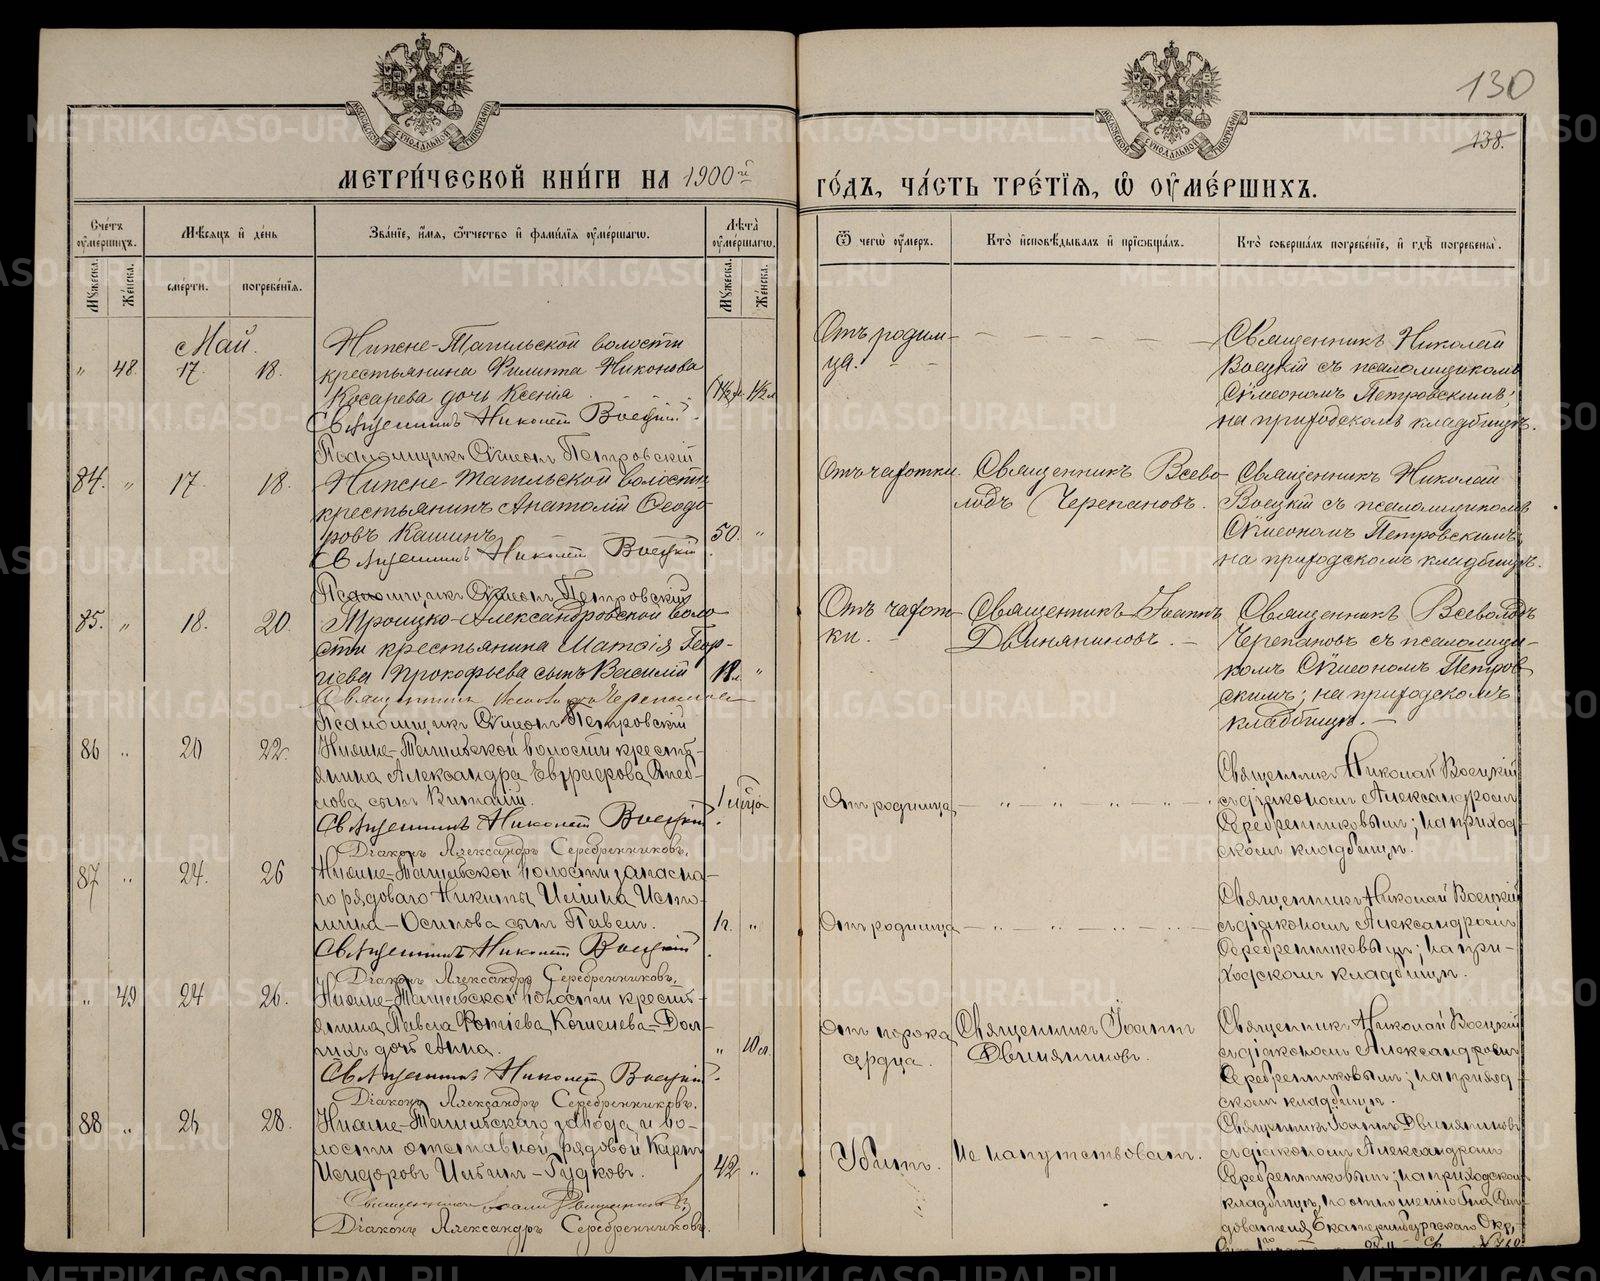 130
138.
МЕТРИ́ЧЕСКОЙ КНИ́ГИ НА 1900й
ГО́ДЪ, ЧА́СТЬ ТРЕ́ТІѦ, Ѽ ОУ҆МЕ́РШИХЪ.
Сче́тъ оу҆ме́ршихъ.
Мѣ́сѧцъ и҆ де́нь
Зва́нїе, и҆́мѧ, ѻ҆́тчество и҆ фами́лїѧ оу҆ме́ршагѡ.
Лѣ́та оу҆ме́ршагѡ.
Ѿ чегѡ̀ оу҆́меръ.
Кто̀ и҆сповѣ́дывалъ и҆ прїѡбща́лъ.
Кто̀ соверша́лъ погребе́нїе, и҆ гдѣ̀ погребены̀.
Мꙋ́жеска.
Же́нска.
сме́рти.
погребе́нїѧ.
Мꙋ́жеска.
Же́нска.
Май.
„ 48. 17. 18.
Нижне-Тагильской волости
крестьянина Филиппа Никонова
Косарева дочь Ксенія
1½ л.
Священникъ Николай Воецкій.
Псаломщикъ Сѷмеонъ Петровскій
Отъ родим-
ца.
Священникъ Николай
Воецкій съ псаломщикомъ
Сѷмеономъ Петровскимъ;
на приходскомъ кладбищѣ.
84. „ 17. 18.
Нижне-Тагильской волости
крестьянинъ Анатолій Ѳеодо-
ровъ Кашинъ
50. „
Священникъ Николай Воецкій
Псаломщикъ Сѷмеонъ Петровскій
Отъ чахотки.
Священникъ Всево
лодъ Черепановъ.
Священникъ Николай
Воецкій съ псаломщикомъ
Сѷмеономъ Петровскимъ,
на приходскомъ кладбищѣ.
85. „ 18. 20.
Троицко-Александровской воло
сти крестьянина Матѳія Геор-
гіева Прокофьева сынъ Василій
18 л. „
Священникъ Всеволодъ Черепановъ
Псаломщикъ Сѷмеонъ Петровскій
Отъ чахот
ки. –
Священникъ Іоаннъ
Двиняниновъ. –
Священникъ Всеволодъ
Черепановъ съ псаломщи-
комъ Сѷмеономъ Петров
скимъ; на приходскомъ
кладбищѣ. –
86 „ 20 22.
Нижне-Тагильской волости кресть-
янина Александра Евграфова
сынъ Виталій.
Священникъ Николай Воецкій.
Діаконъ Александръ Серебренниковъ.
Отъ родимца
Священникъ Николай Воецкій
съ діакономъ Александромъ
Серебренниковымъ; на приход-
скомъ кладбищѣ.
87 „ 24. 26
Нижне-Тагильской волости запасна-
го рядоваго Никиты Ильина Исто-
мина-Осипова сынъ Павелъ.
1 г. „
Священникъ Николай Воецкій
Діаконъ Александръ Серебренниковъ.
Отъ родимца
Священникъ Николай Воецкій
съ діакономъ Александромъ
Серебренниковымъ; на при-
ходскомъ кладбищѣ.
„ 49 24 26.
Нижне-Тагильской волости кресть-
янина Павла Фотіева Кошелева-Дол-
гихъ дочь Анна.
„ 10 л.
Священникъ Николай Воецкій.
Діаконъ Александръ Серебренниковъ.
Отъ порока
сердца.
Священникъ Іоаннъ
Двиняниновъ.
Священникъ Николай Воецкій
съ діакономъ Александромъ
Серебренниковымъ; на приход-
скомъ кладбищѣ.
88 „ 26 28.
Нижне-Тагильскаго завода и во-
лости отставной рядовой Карпъ
Исидоровъ Гудковъ.
42 „
Священникъ Іоаннъ Двиняниновъ
Діаконъ Александръ Серебренниковъ.
Убитъ.
Не напутствованъ.
Священникъ Іоаннъ Двиняниновъ
съ діакономъ Александромъ
Серебренниковымъ; на приходскомъ
кладбищѣ, по отношенію
Екатеринбургскаго Окр.
METRIKI.GASO-URAL.RU